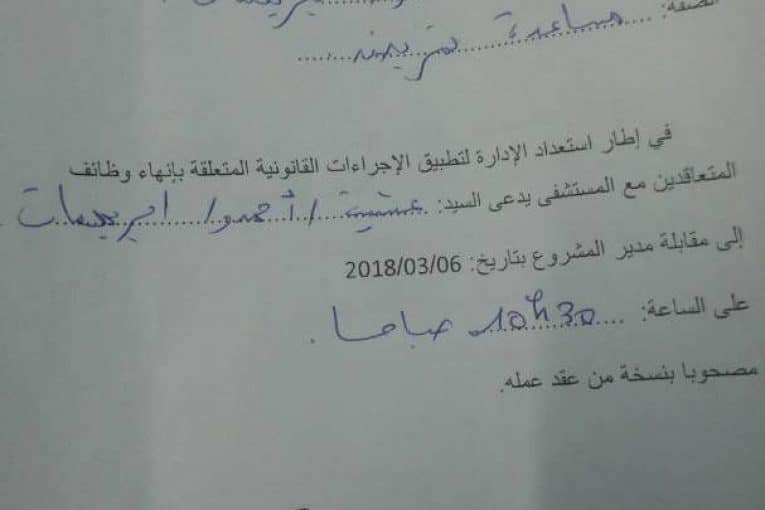 الصفة: مساعدة تمريض
في إطار استعداد الإدارة لتطبيق الإجراءات القانونية المتعلقة بإنهاء وظائف
المتعاقدين مع المستشفى يدعى السيد: عيشة / أحمدو / ابريهمات
إلى مقابلة مدير المشروع بتاريخ: 2018/03/06
على الساعة: 10h30 صباحا.
مصحوبا بنسخة من عقد عمله.